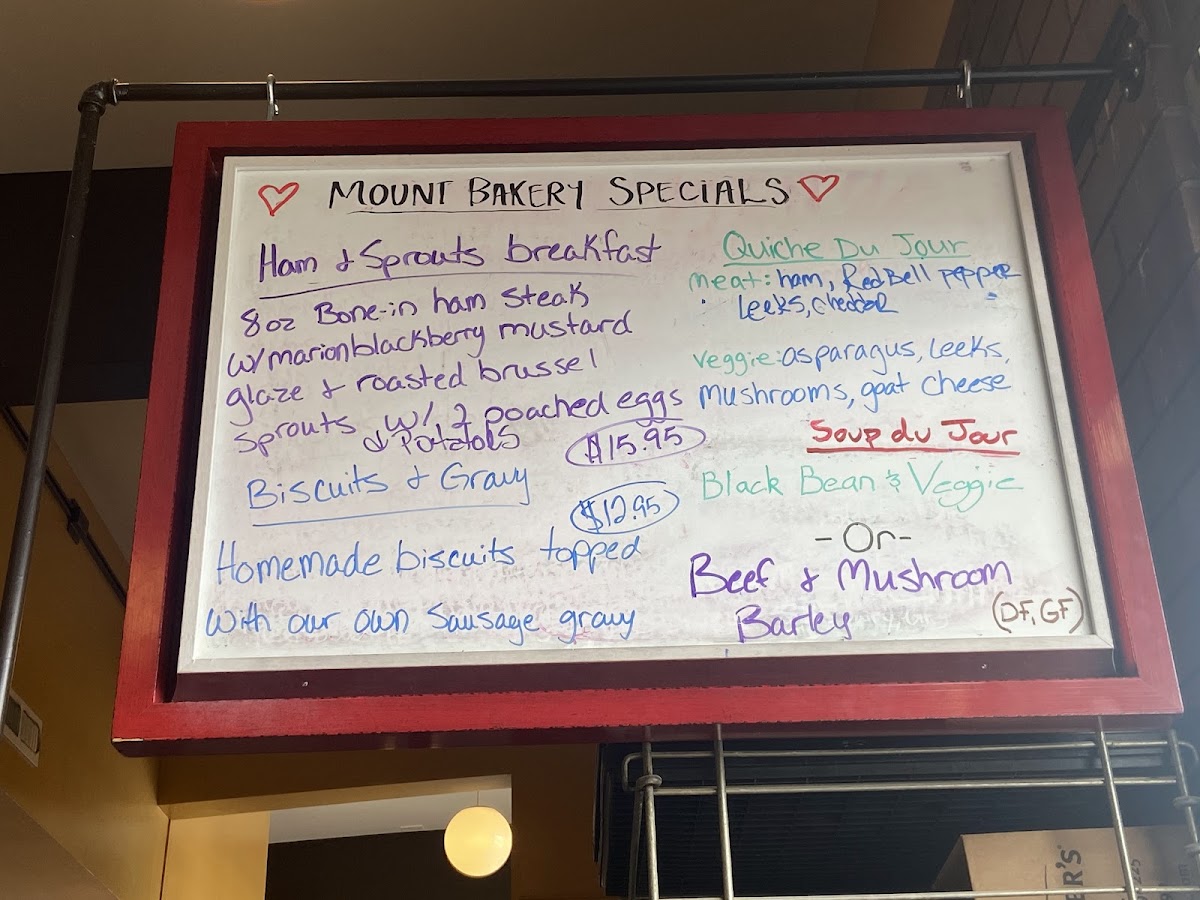 MOUNT BAKERY SPECIALS
Ham & Sprouts breakfast
8oz Bone-in ham steak
w/marionblackberry mustard
glaze & roasted brussel
sprouts w/ 2 poached eggs
& Potatoes
$15.95
Biscuits & Gravy
$12.95
Homemade biscuits topped
with our own Sausage gravy
Quiche Du Jour
meat: ham, Red Bell pepper
leeks, cheddar
veggie: asparagus, leeks,
mushrooms, goat cheese
Soup du Jour
Black Bean & Veggie
-Or-
Beef & Mushroom
Barley
(DF, GF)
ER'S